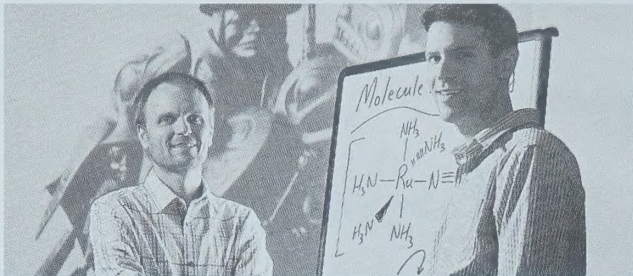 Molecule
NH₃
NH₃
H₃N—Ru—N≡
H₃N
NH₃